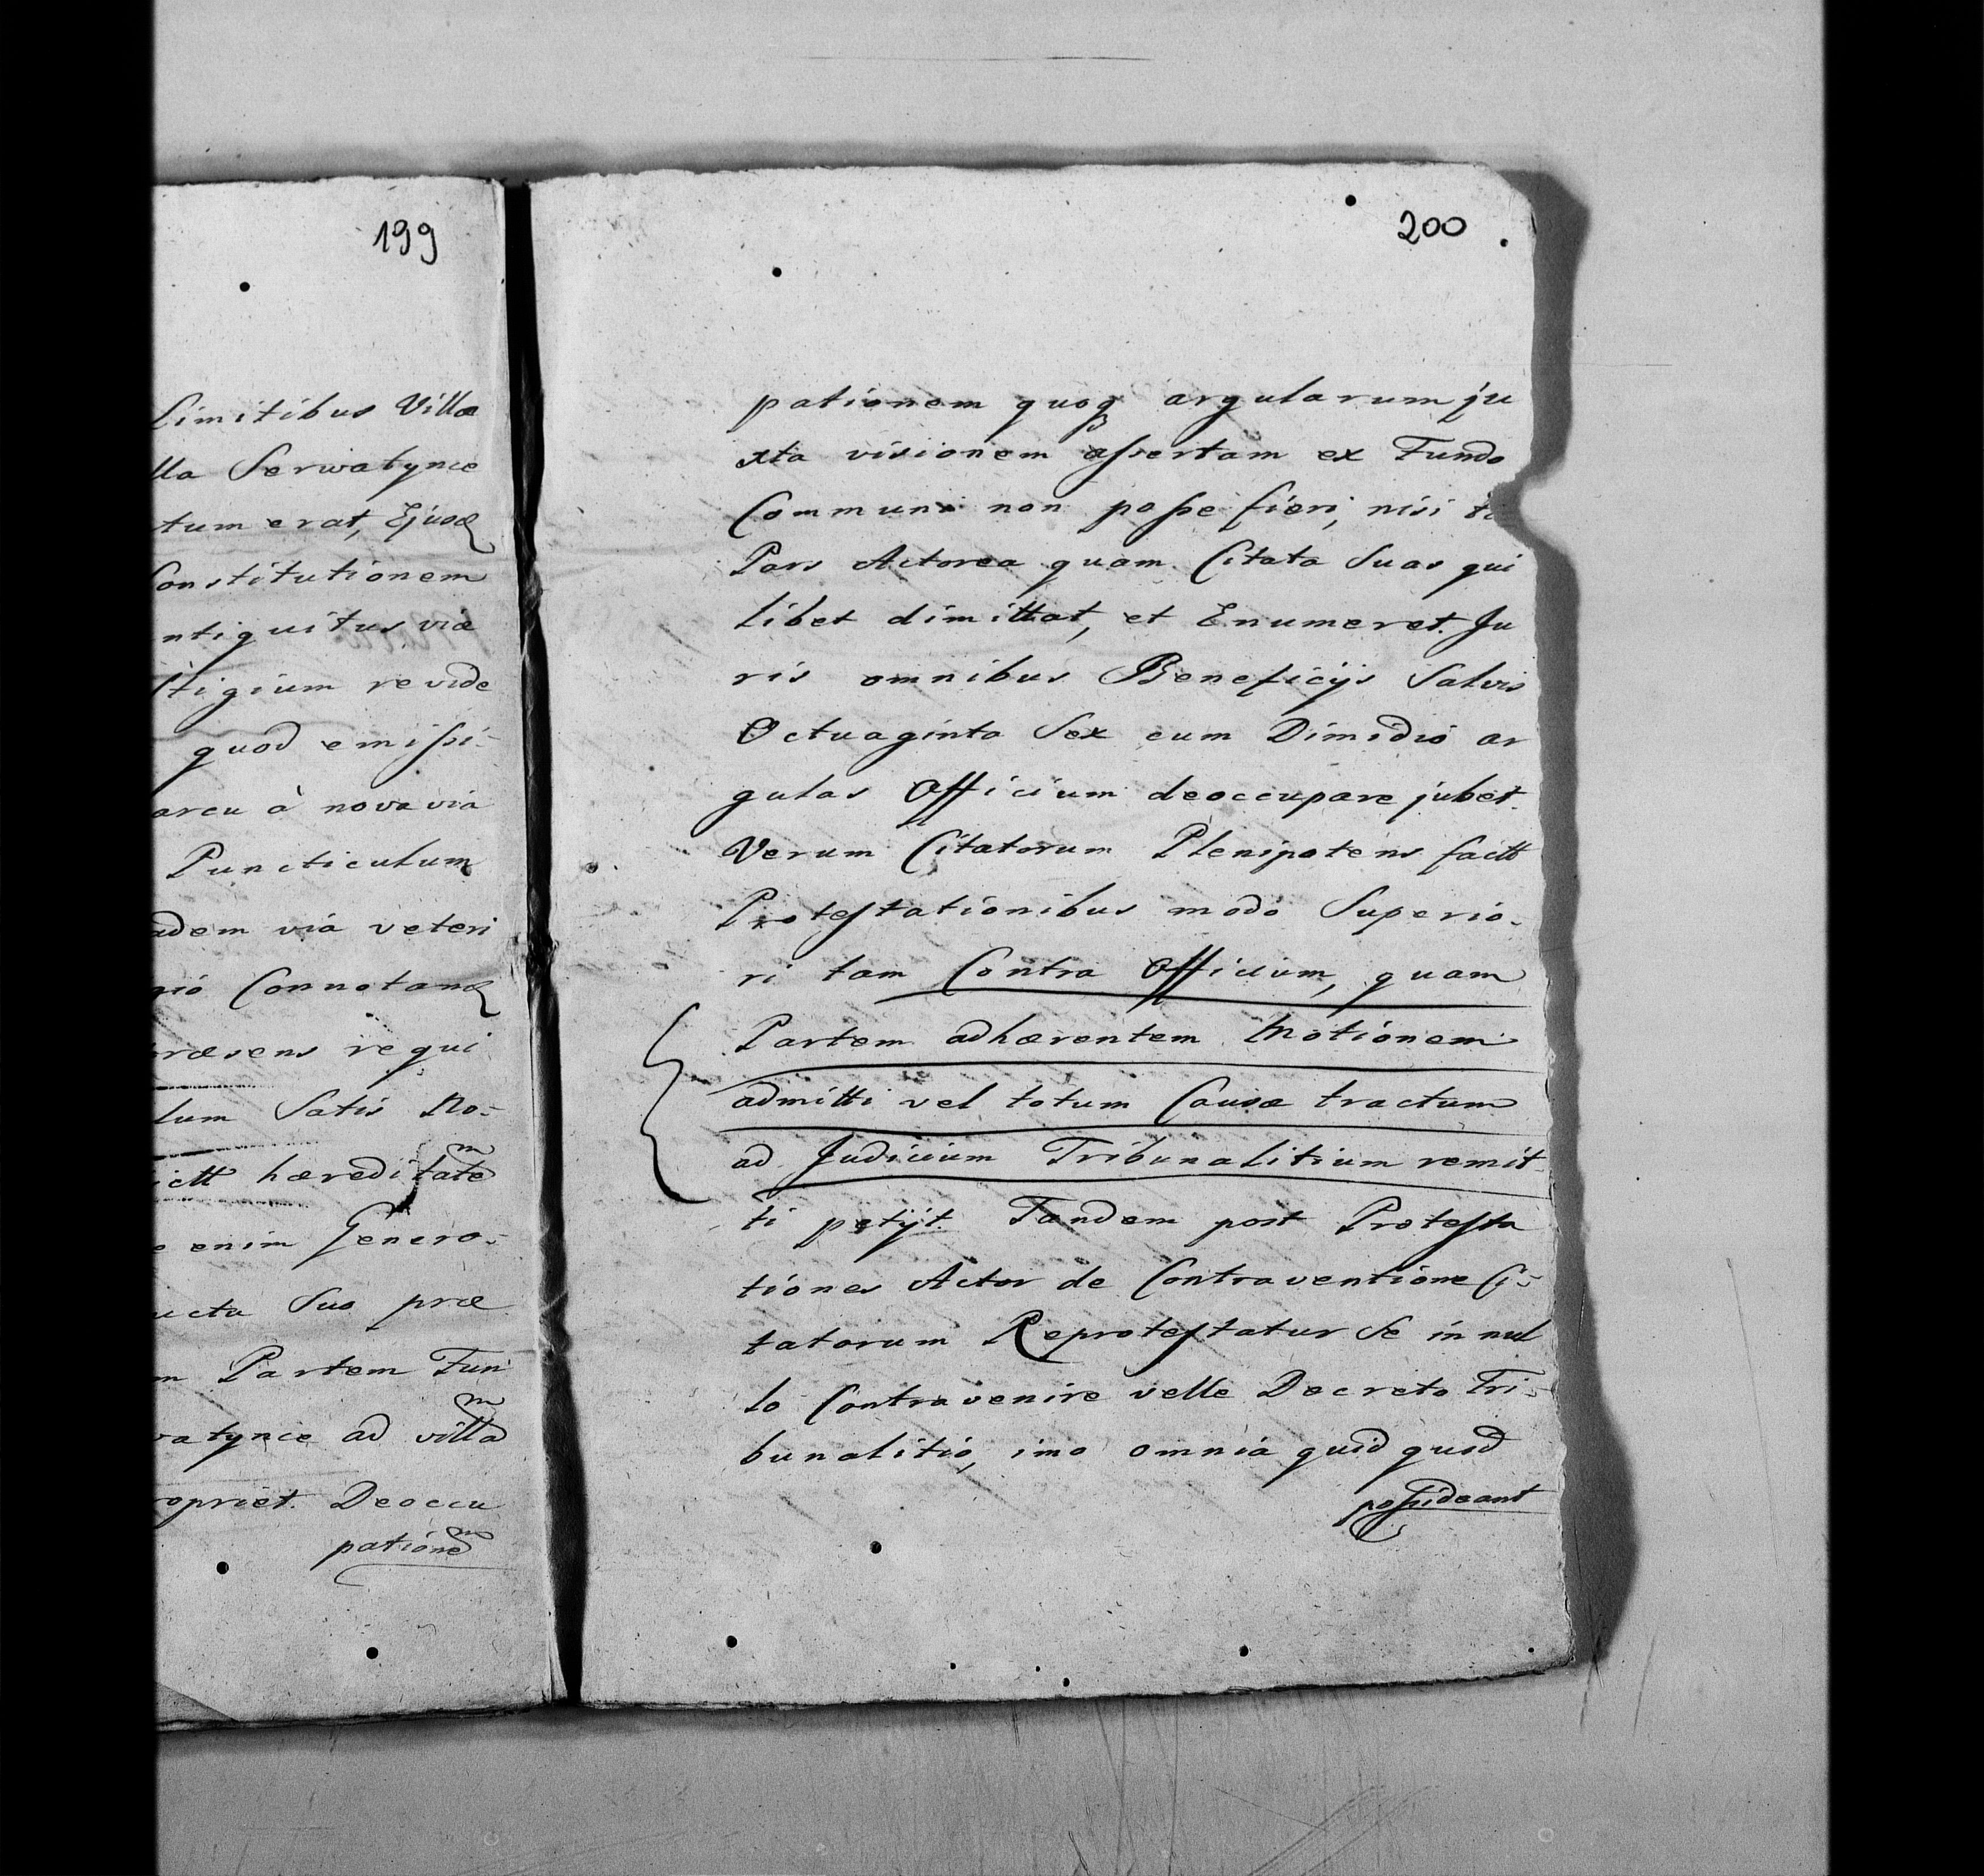 199
Limitibus Villæ
lla Serwatynce
tum erat, Ejusq
Constitutionem
ntiquitus viæ
stigium revide
quod emissi-
arcu à nova via
Puncticulum
adem viá veteri
nió Connotanq
præsens requi
lum Satis No-
ictt hæreditatem
e enim Genero-
ucta Suo præ
m Partem Fun
vatynce ad villam
ropriet. Deoccu
pationem
200
pationem quoq argularum ju
xta visionem assertam ex Fundo
Communi non posse fieri, nisi
Pars Actorea quam Citata Suas qui
libet dimittat, et Enumeret. Ju
ris omnibus Beneficijs Salvis
Octuaginta Sex cum Dimidió ar
gulas Officium deoccupare jubet.
Verum Citatorum Plenipotens factt
Protestationibus modo Superio-
ri tam Contra Officium, quam
Partem adhærentem Motionem
admitti vel totum Causæ tractum
ad Judicium Tribunalitium remit
ti petijt. Tandem post Protesta
tiones Actor de Contraventione Ci-
tatorum Reprotestatur Se in nul
lo Contravenire velle Decreto Tri-
bunalitio, imo omnia quid quod
possideant